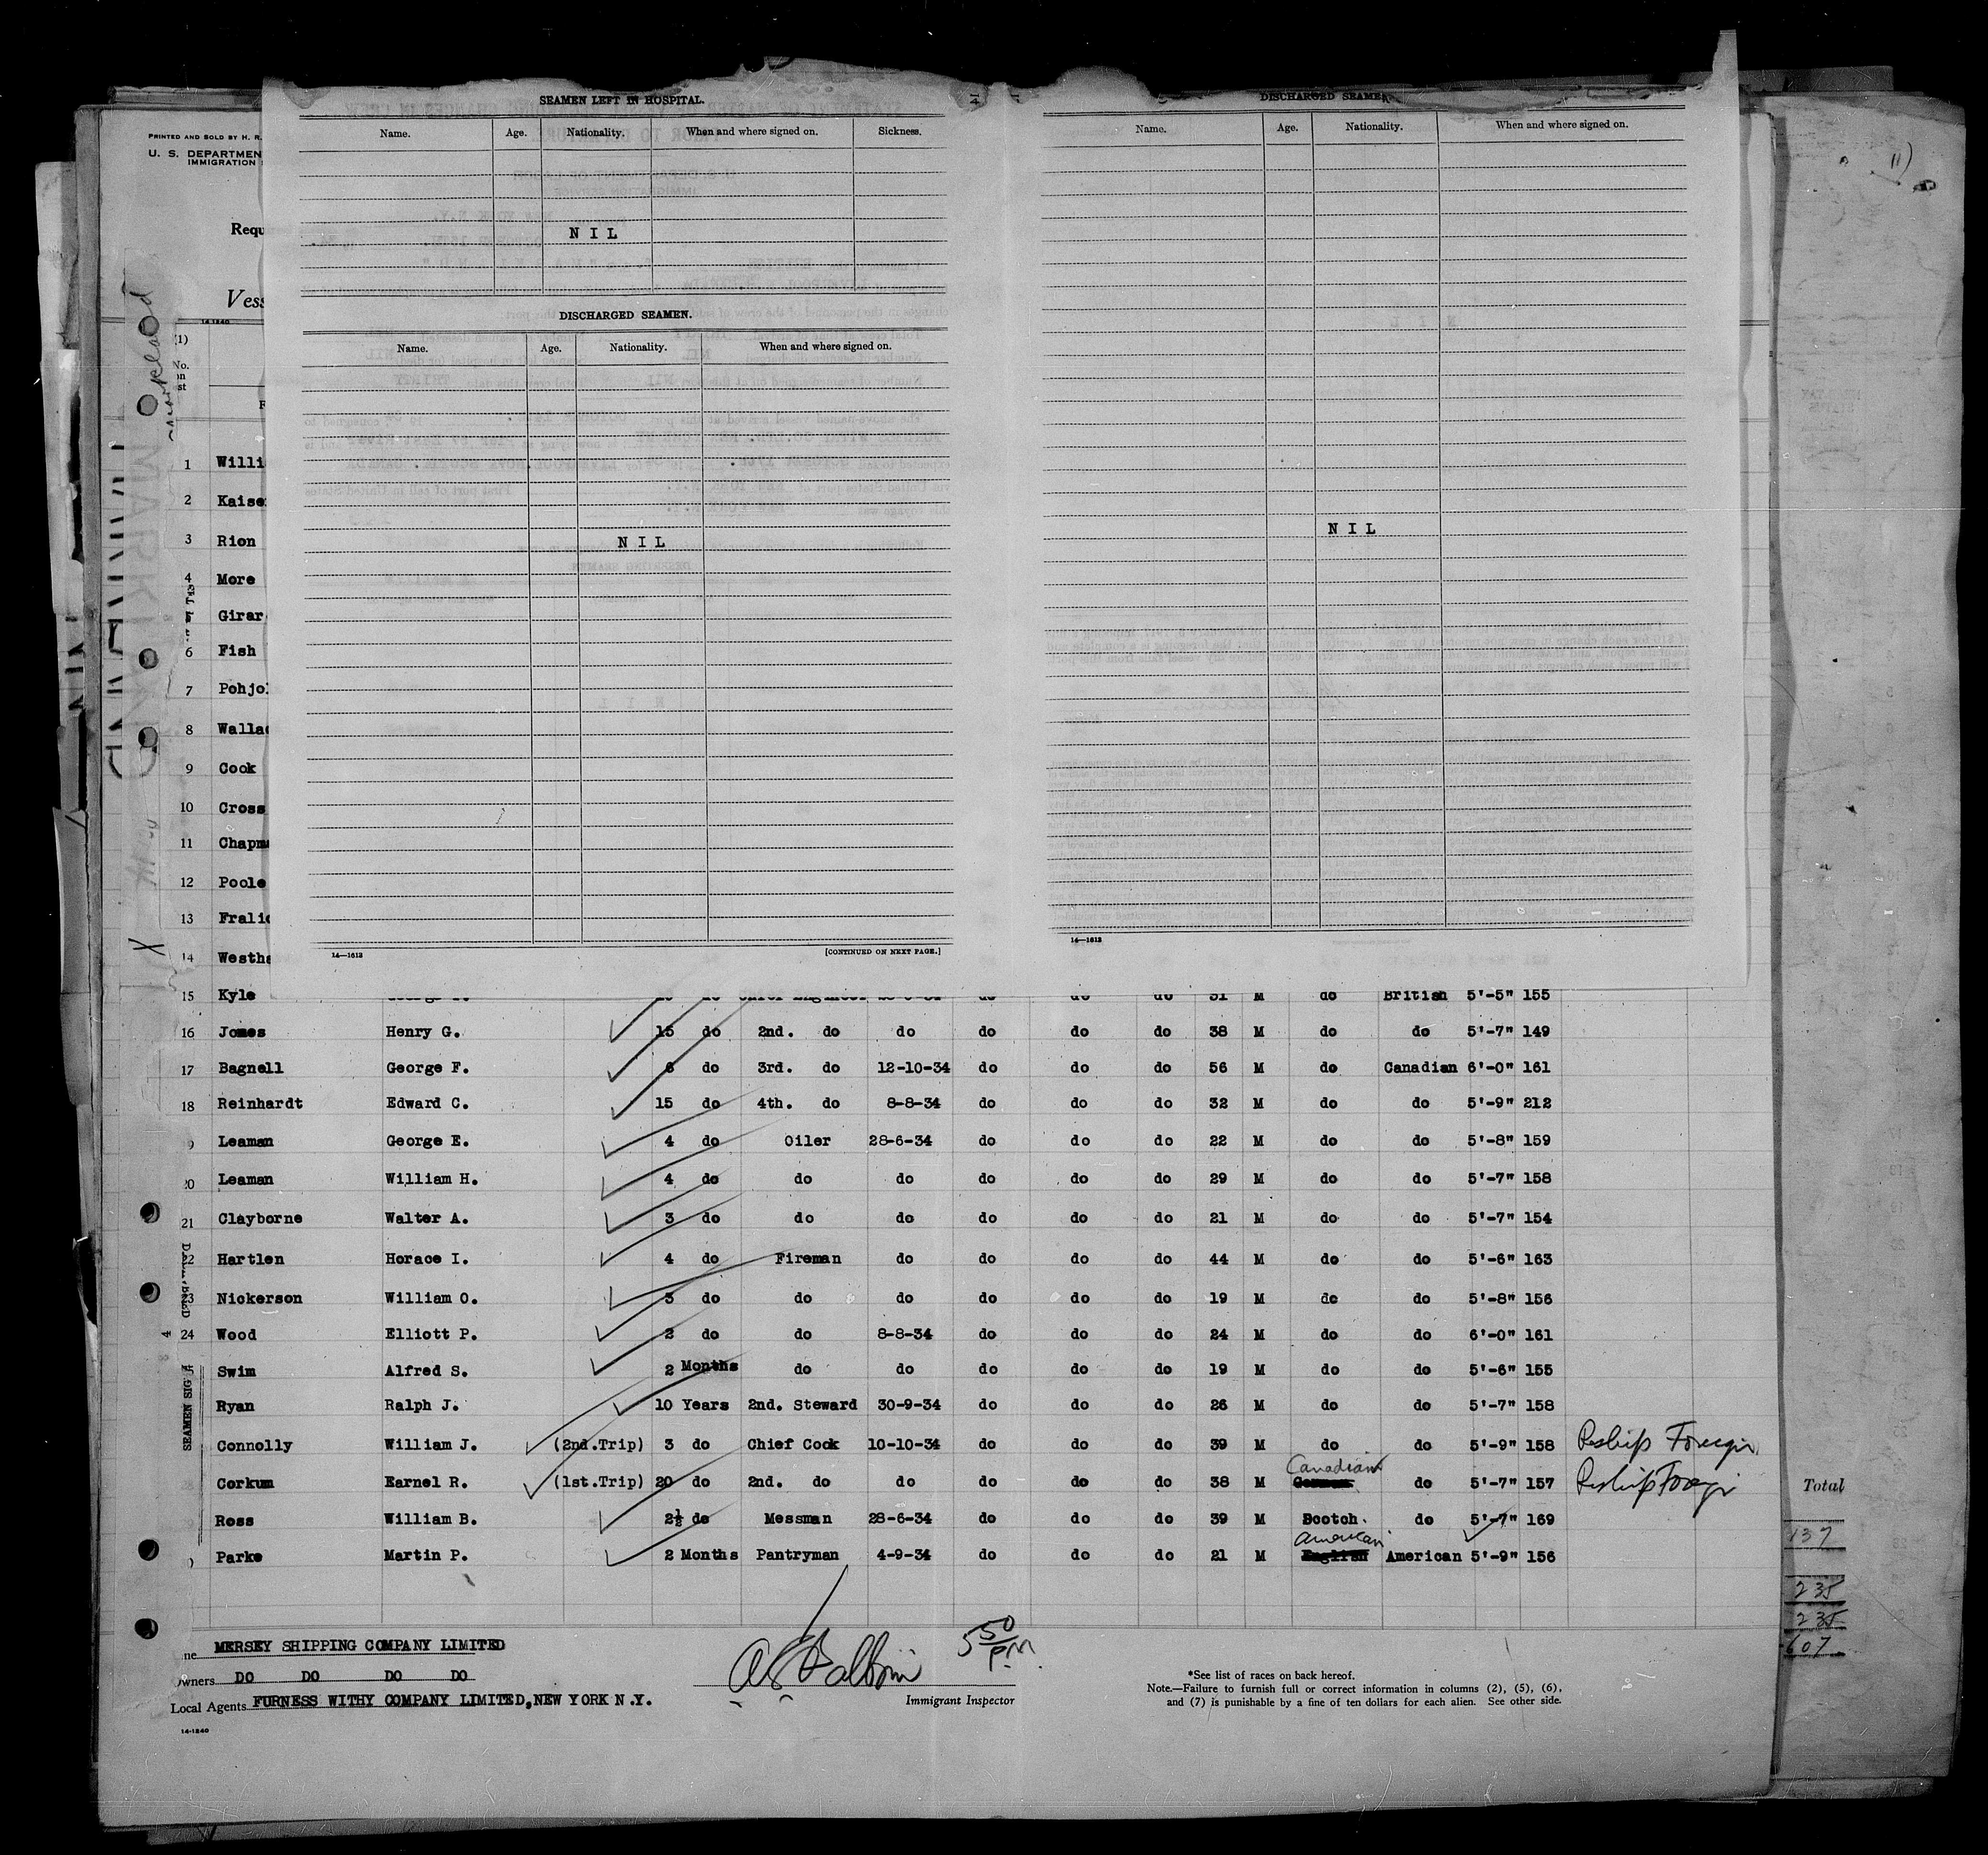 SEAMEN LEFT IN HOSPITAL.
Name. Age. Nationality. When and where signed on. Sickness.
N I L
DISCHARGED SEAMEN.
Name. Age. Nationality. When and where signed on.
N I L
14—1613 [CONTINUED ON NEXT PAGE.]
DISCHARGED SEAMEN
Name. Age. Nationality. When and where signed on.
N I L
14—1613
11)
PRINTED AND SOLD BY H. R.
U. S. DEPARTMEN
IMMIGRATION
Requ
Vess
14-1240
(1)
No.
on
st
Markland
MARKLAND
1 Willi
2 Kaise
3 Rion
4 More
Girar
6 Fish
7 Pohjo
8 Walla
9 Cook
10 Cross
11 Chapm
12 Poole
13 Frali
14 Westha
15 Kyle do do do 31 M do British 5'-5" 155
16 Jones Henry G. 15 do 2nd. do do do do do 38 M do do 5'-7" 149
17 Bagnell George F. 6 do 3rd. do 12-10-34 do do do 56 M do Canadian 6'-0" 161
18 Reinhardt Edward C. 15 do 4th. do 8-8-34 do do do 32 M do do 5'-9" 212
9 Leaman George E. 4 do Oiler 28-6-34 do do do 22 M do do 5'-8" 159
20 Leaman William H. 4 do do do do do do 29 M do do 5'-7" 158
21 Clayborne Walter A. 3 do do do do do do 21 M do do 5'-7" 154
22 Hartlen Horace I. 4 do Fireman do do do do 44 M do do 5'-6" 163
23 Nickerson William O. 3 do do do do do do 19 M do do 5'-8" 156
24 Wood Elliott P. 2 do do 8-8-34 do do do 24 M do do 6'-0" 161
Swim Alfred S. 2 Months do do do do do 19 M do do 5'-6" 155
Ryan Ralph J. 10 Years 2nd. Steward 30-9-34 do do do 26 M do do 5'-7" 158
Connolly William J. (2nd.Trip) 3 do Chief Cook 10-10-34 do do do 39 M do do 5'-9" 158 Reship Foreign
Canadian
Corkum Earnel R. (1st.Trip) 20 do 2nd. do do do do do 38 M German do 5'-7" 157 Reship Foreign
Ross William B. 2½ do Messman 28-6-34 do do do 39 M Scotch. do 5'-7" 169
American
Parke Martin P. 2 Months Pantryman 4-9-34 do do do 21 M English American 5'-9" 156
SEAMEN SIG
ne MERSEY SHIPPING COMPANY LIMITED
wners DO DO DO DO
Local Agents FURNESS WITHY COMPANY LIMITED, NEW YORK N.Y.
14-1240
5 50 P.M.
Immigrant Inspector
*See list of races on back hereof.
Note.—Failure to furnish full or correct information in columns (2), (5), (6),
and (7) is punishable by a fine of ten dollars for each alien. See other side.
Total
137
235
235
607